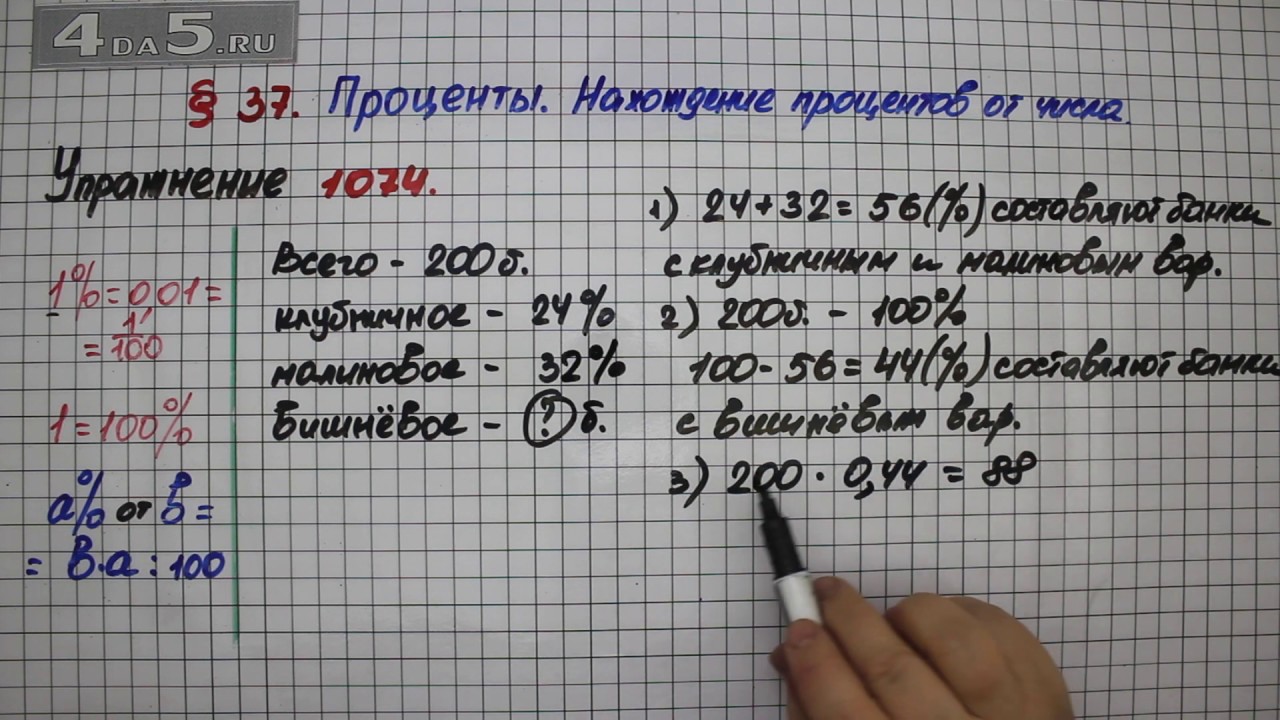 4DA5.RU
§ 37. Проценты. Нахождение процентов от числа.
Упражнение 1074.
1% = 0,01 =
= 1/100
1 = 100%
a% от b =
= b·a : 100
Всего - 200 б.
клубничное - 24%
малиновое - 32%
Вишнёвое - ? б.
1) 24 + 32 = 56 (%) составляют банки
с клубничным и малиновым вар.
2) 200б. - 100%
100 - 56 = 44 (%) составляют банки
с вишнёвым вар.
3) 200 · 0,44 = 88